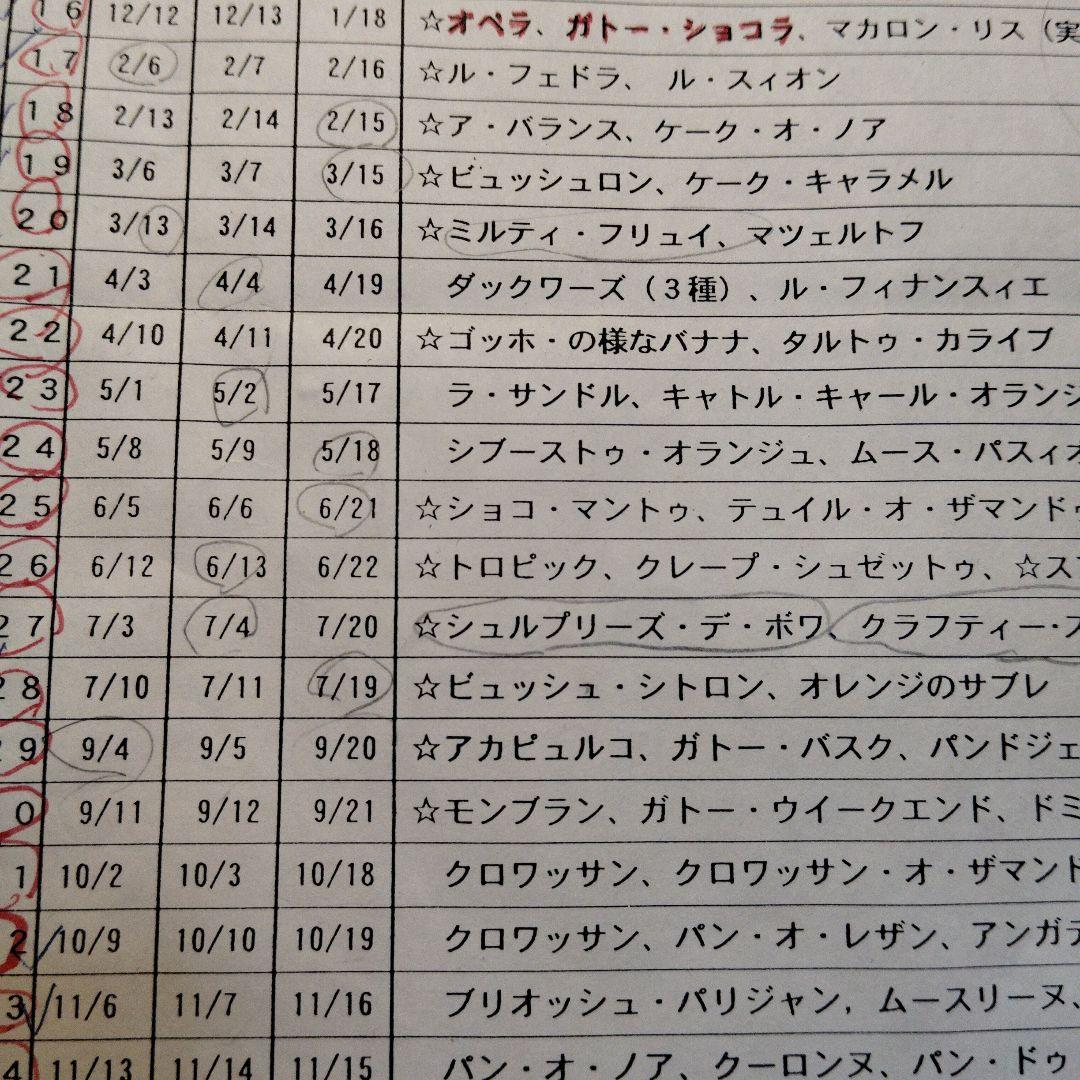 16 12/12 12/13 1/18 ☆オペラ、ガトー・ショコラ、マカロン・リス（実
17 2/6 2/7 2/16 ☆ル・フェドラ、ル・スィオン
18 2/13 2/14 2/15 ☆ア・バランス、ケーク・オ・ノア
19 3/6 3/7 3/15 ☆ビュッシュロン、ケーク・キャラメル
20 3/13 3/14 3/16 ☆ミルティ・フリュイ、マツェルトフ
21 4/3 4/4 4/19 ダックワーズ（３種）、ル・フィナンスィエ
22 4/10 4/11 4/20 ☆ゴッホ・の様なバナナ、タルトゥ・カライブ
23 5/1 5/2 5/17 ラ・サンドル、キャトル・キャール・オランジ
24 5/8 5/9 5/18 シブーストゥ・オランジュ、ムース・パスィオ
25 6/5 6/6 6/21 ☆ショコ・マントゥ、テュイル・オ・ザマンドゥ
26 6/12 6/13 6/22 ☆トロピック、クレープ・シュゼットゥ、☆ス
27 7/3 7/4 7/20 ☆シュルプリーズ・デ・ボワ、クラフティー・
28 7/10 7/11 7/19 ☆ビュッシュ・シトロン、オレンジのサブレ
29 9/4 9/5 9/20 ☆アカピュルコ、ガトー・バスク、パンドジェ
0 9/11 9/12 9/21 ☆モンブラン、ガトー・ウイークエンド、ドミ
1 10/2 10/3 10/18 クロワッサン、クロワッサン・オ・ザマンド
2 10/9 10/10 10/19 クロワッサン、パン・オ・レザン、アンガデ
3 11/6 11/7 11/16 ブリオッシュ・パリジャン，ムースリーヌ、
4 11/13 11/14 11/15 パン・オ・ノア、クーロンヌ、パン・ドゥ